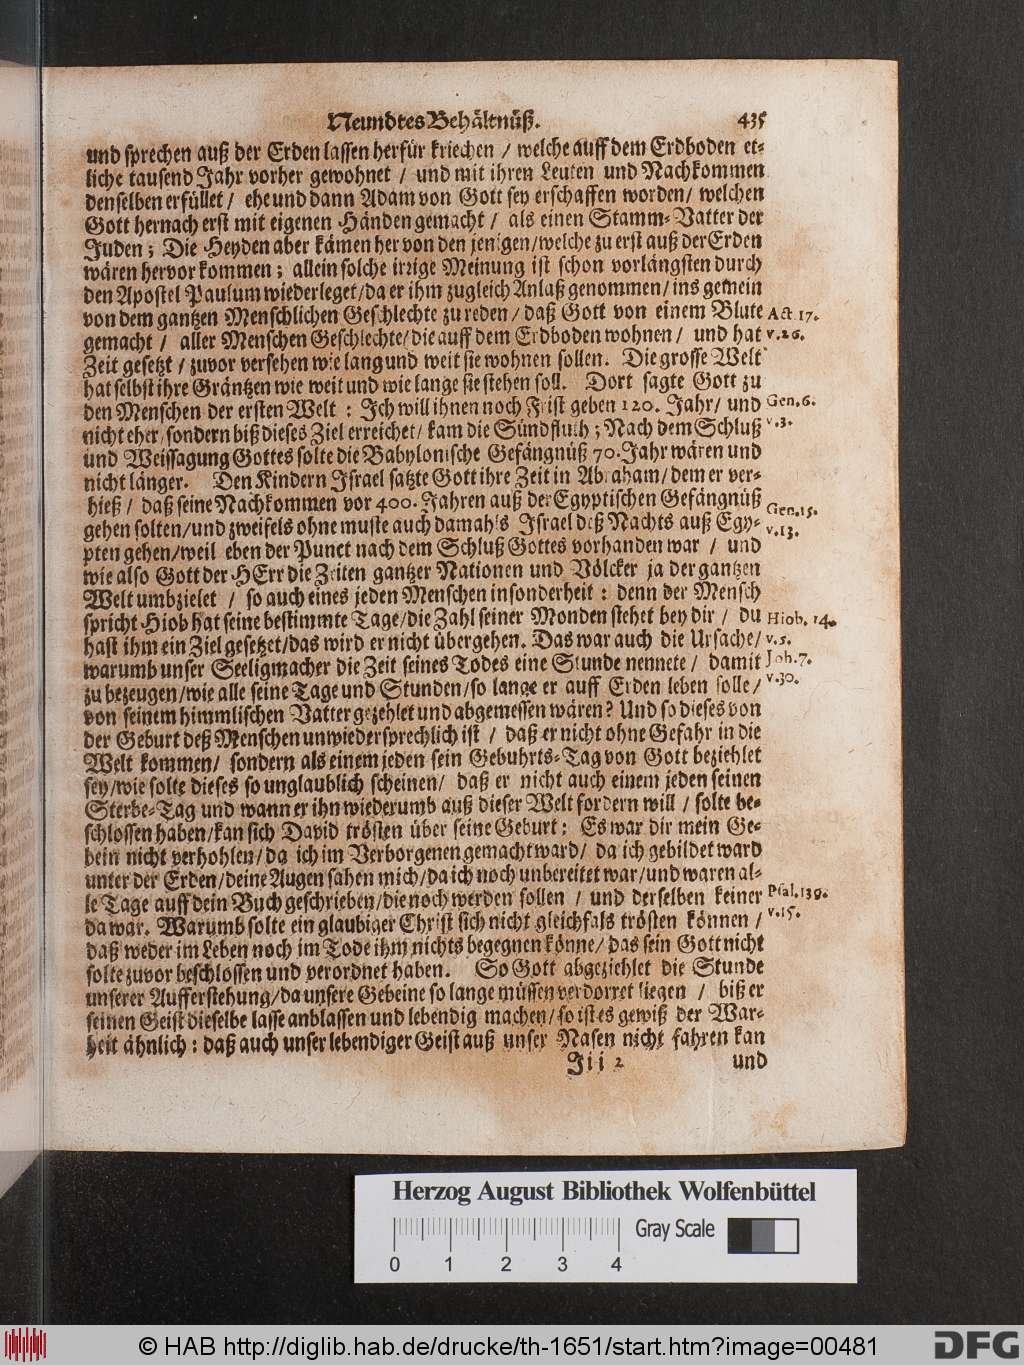 Neundtes Behältnüß. 435
und sprechen auß der Erden lassen herfür kriechen / welche auff dem Erdboden et-
liche tausend Jahr vorher gewohnet / und mit ihren Leuten und Nachkommen
denselben erfüllet / ehe und dann Adam von Gott sey erschaffen worden / welchen
Gott hernach erst mit eigenen Händen gemacht / als einen Stamm-Vatter der
Juden ; Die Heyden aber kämen her von den jenigen / welche zu erst auß der Erden
wären hervor kommen ; allein solche irrige Meinung ist schon vorlängsten durch
den Apostel Paulum wiederleget / da er ihm zugleich Anlaß genommen / ins gemein
von dem gantzen Menschlichen Geschlechte zu reden / daß Gott von einem Blute Act. 17.
gemacht / aller Menschen Geschlechte / die auff dem Erdboden wohnen / und hat v. 26.
Zeit gesetzt / zuvor versehen wie lang und weit sie wohnen sollen. Die grosse Welt
hat selbst ihre Gräntzen wie weit und wie lange sie stehen soll. Dort sagte Gott zu
den Menschen der ersten Welt : Ich will ihnen noch Frist geben 120. Jahr / und Gen. 6.
nicht eher / sondern biß dieses Ziel erreichet / kam die Sündfluth ; Nach dem Schluß v. 3.
und Weissagung Gottes solte die Babylonische Gefängnüß 70. Jahr wären und
nicht länger. Den Kindern Israel satzte Gott ihre Zeit in Abraham / dem er ver-
hieß / daß seine Nachkommen vor 400. Jahren auß der Egyptischen Gefängnüß Gen. 15.
gehen solten / und zweifels ohne muste auch damahls Israel deß Nachts auß Egy- v. 13.
pten gehen / weil eben der Punct nach dem Schluß Gottes vorhanden war / und
wie also Gott der HErr die Zeiten gantzer Nationen und Völcker ja der gantzen
Welt umbzielet / so auch eines jeden Menschen insonderheit : denn der Mensch
spricht Hiob hat seine bestimmte Tage / die Zahl seiner Monden stehet bey dir / du Hiob. 14.
hast ihm ein Ziel gesetzet / das wird er nicht übergehen. Das war auch die Ursache / v. 5.
warumb unser Seeligmacher die Zeit seines Todes eine Stunde nennete / damit Joh. 7.
zu bezeugen / wie alle seine Tage und Stunden / so lange er auff Erden leben solle / v. 30.
von seinem himmlischen Vatter gezehlet und abgemessen wären? Und so dieses von
der Geburt deß Menschen unwiedersprechlich ist / daß er nicht ohne Gefahr in die
Welt kommen / sondern als einem jeden sein Gebuhrts-Tag von Gott beziehlet
sey / wie solte dieses so unglaublich scheinen / daß er nicht auch einem jeden seinen
Sterbe-Tag und wann er ihn wiederumb auß dieser Welt fordern will / solte be-
schlossen haben / kan sich David trösten über seine Geburt : Es war dir mein Ge-
bein nicht verhohlen / da ich im Verborgenen gemacht ward / da ich gebildet ward
unter der Erden / deine Augen sahen mich / da ich noch unbereitet war / und waren al-
le Tage auff dein Buch geschrieben / die noch werden sollen / und derselben keiner Psal. 139.
da war. Warumb solte ein glaubiger Christ sich nicht gleichfals trösten können / v. 15.
daß weder im Leben noch im Tode ihm nichts begegnen könne / das sein Gott nicht
solte zuvor beschlossen und verordnet haben. So Gott abgeziehlet die Stunde
unserer Aufferstehung / da unsere Gebeine so lange müssen verdorret liegen / biß er
seinen Geist dieselbe lasse anblassen und lebendig machen / so ist es gewiß der War-
heit ähnlich : daß auch unser lebendiger Geist auß unser Nasen nicht fahren kan
Iii 2 und
Herzog August Bibliothek Wolfenbüttel
0 1 2 3 4
Gray Scale
© HAB http://diglib.hab.de/drucke/th-1651/start.htm?image=00481
DFG